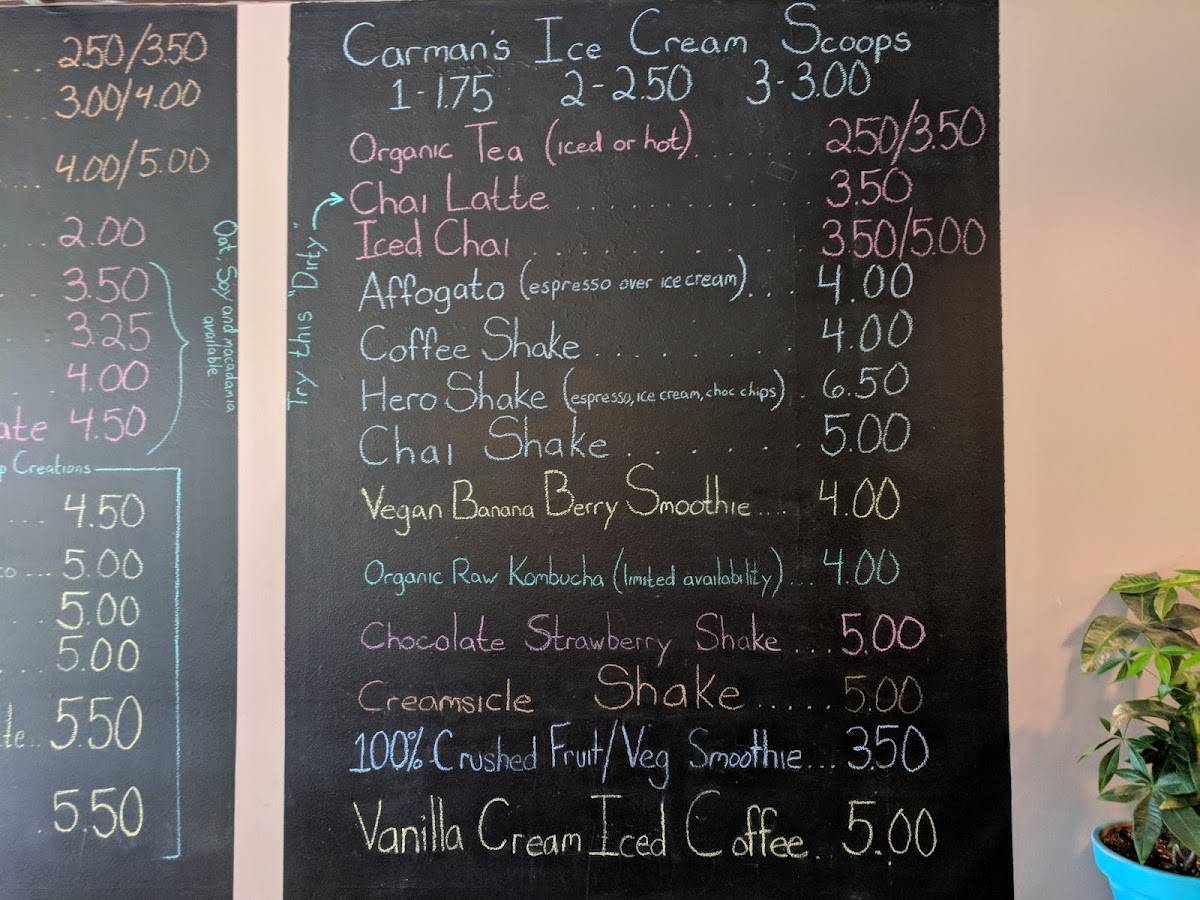 250/3.50
3.00/4.00
4.00/5.00
2.00
3.50
3.25
4.00
4.50
Oat, Soy and macadamia
available
Creations
4.50
5.00
5.00
5.00
5.50
5.50
Carman's Ice Cream Scoops
1-1.75 2-2.50 3-3.00
Organic Tea (iced or hot)........ 2.50/3.50
Try this "Dirty" → Chai Latte ............ 3.50
Iced Chai ............ 3.50/5.00
Affogato (espresso over ice cream)... 4.00
Coffee Shake .......... 4.00
Hero Shake (espresso, ice cream, choc chips). 6.50
Chai Shake ........ 5.00
Vegan Banana Berry Smoothie.... 4.00
Organic Raw Kombucha (limited availability)... 4.00
Chocolate Strawberry Shake ...5.00
Creamsicle Shake ...... 5.00
100% Crushed Fruit/Veg Smoothie... 3.50
Vanilla Cream Iced Coffee. 5.00